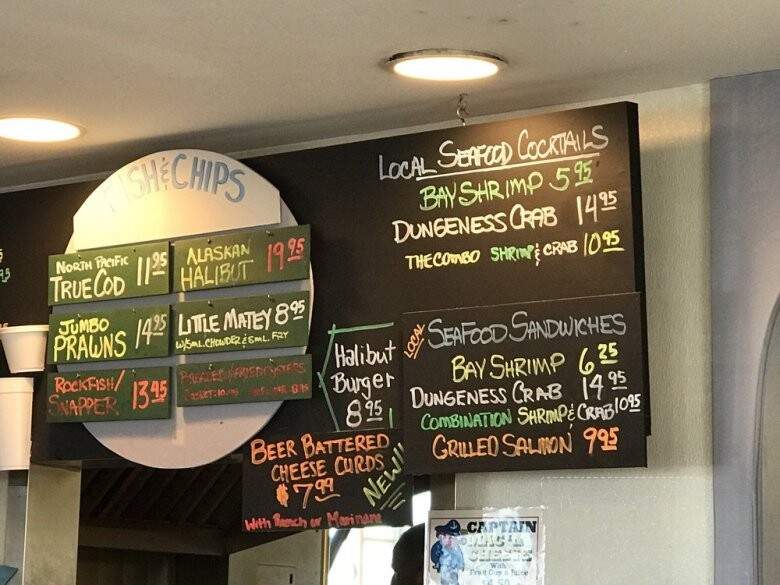 FISH & CHIPS
NORTH PACIFIC
TRUE COD 11.95
ALASKAN
HALIBUT 19.95
JUMBO
PRAWNS 14.95
LITTLE MATEY 8.95
W/SML. CHOWDER & SML. FRY
ROCKFISH/
SNAPPER 13.95
LOCAL SEAFOOD COCKTAILS
BAY SHRIMP 5.95
DUNGENESS CRAB 14.95
THE COMBO SHRIMP & CRAB 10.95
Halibut
Burger
8.95
LOCAL SEAFOOD SANDWICHES
BAY SHRIMP 6.25
DUNGENESS CRAB 14.95
COMBINATION SHRIMP & CRAB 10.95
GRILLED SALMON 9.95
BEER BATTERED
CHEESE CURDS
$7.99
NEW!!
With Ranch or Marinara
CAPTAIN
MAC &
CHEESE
With